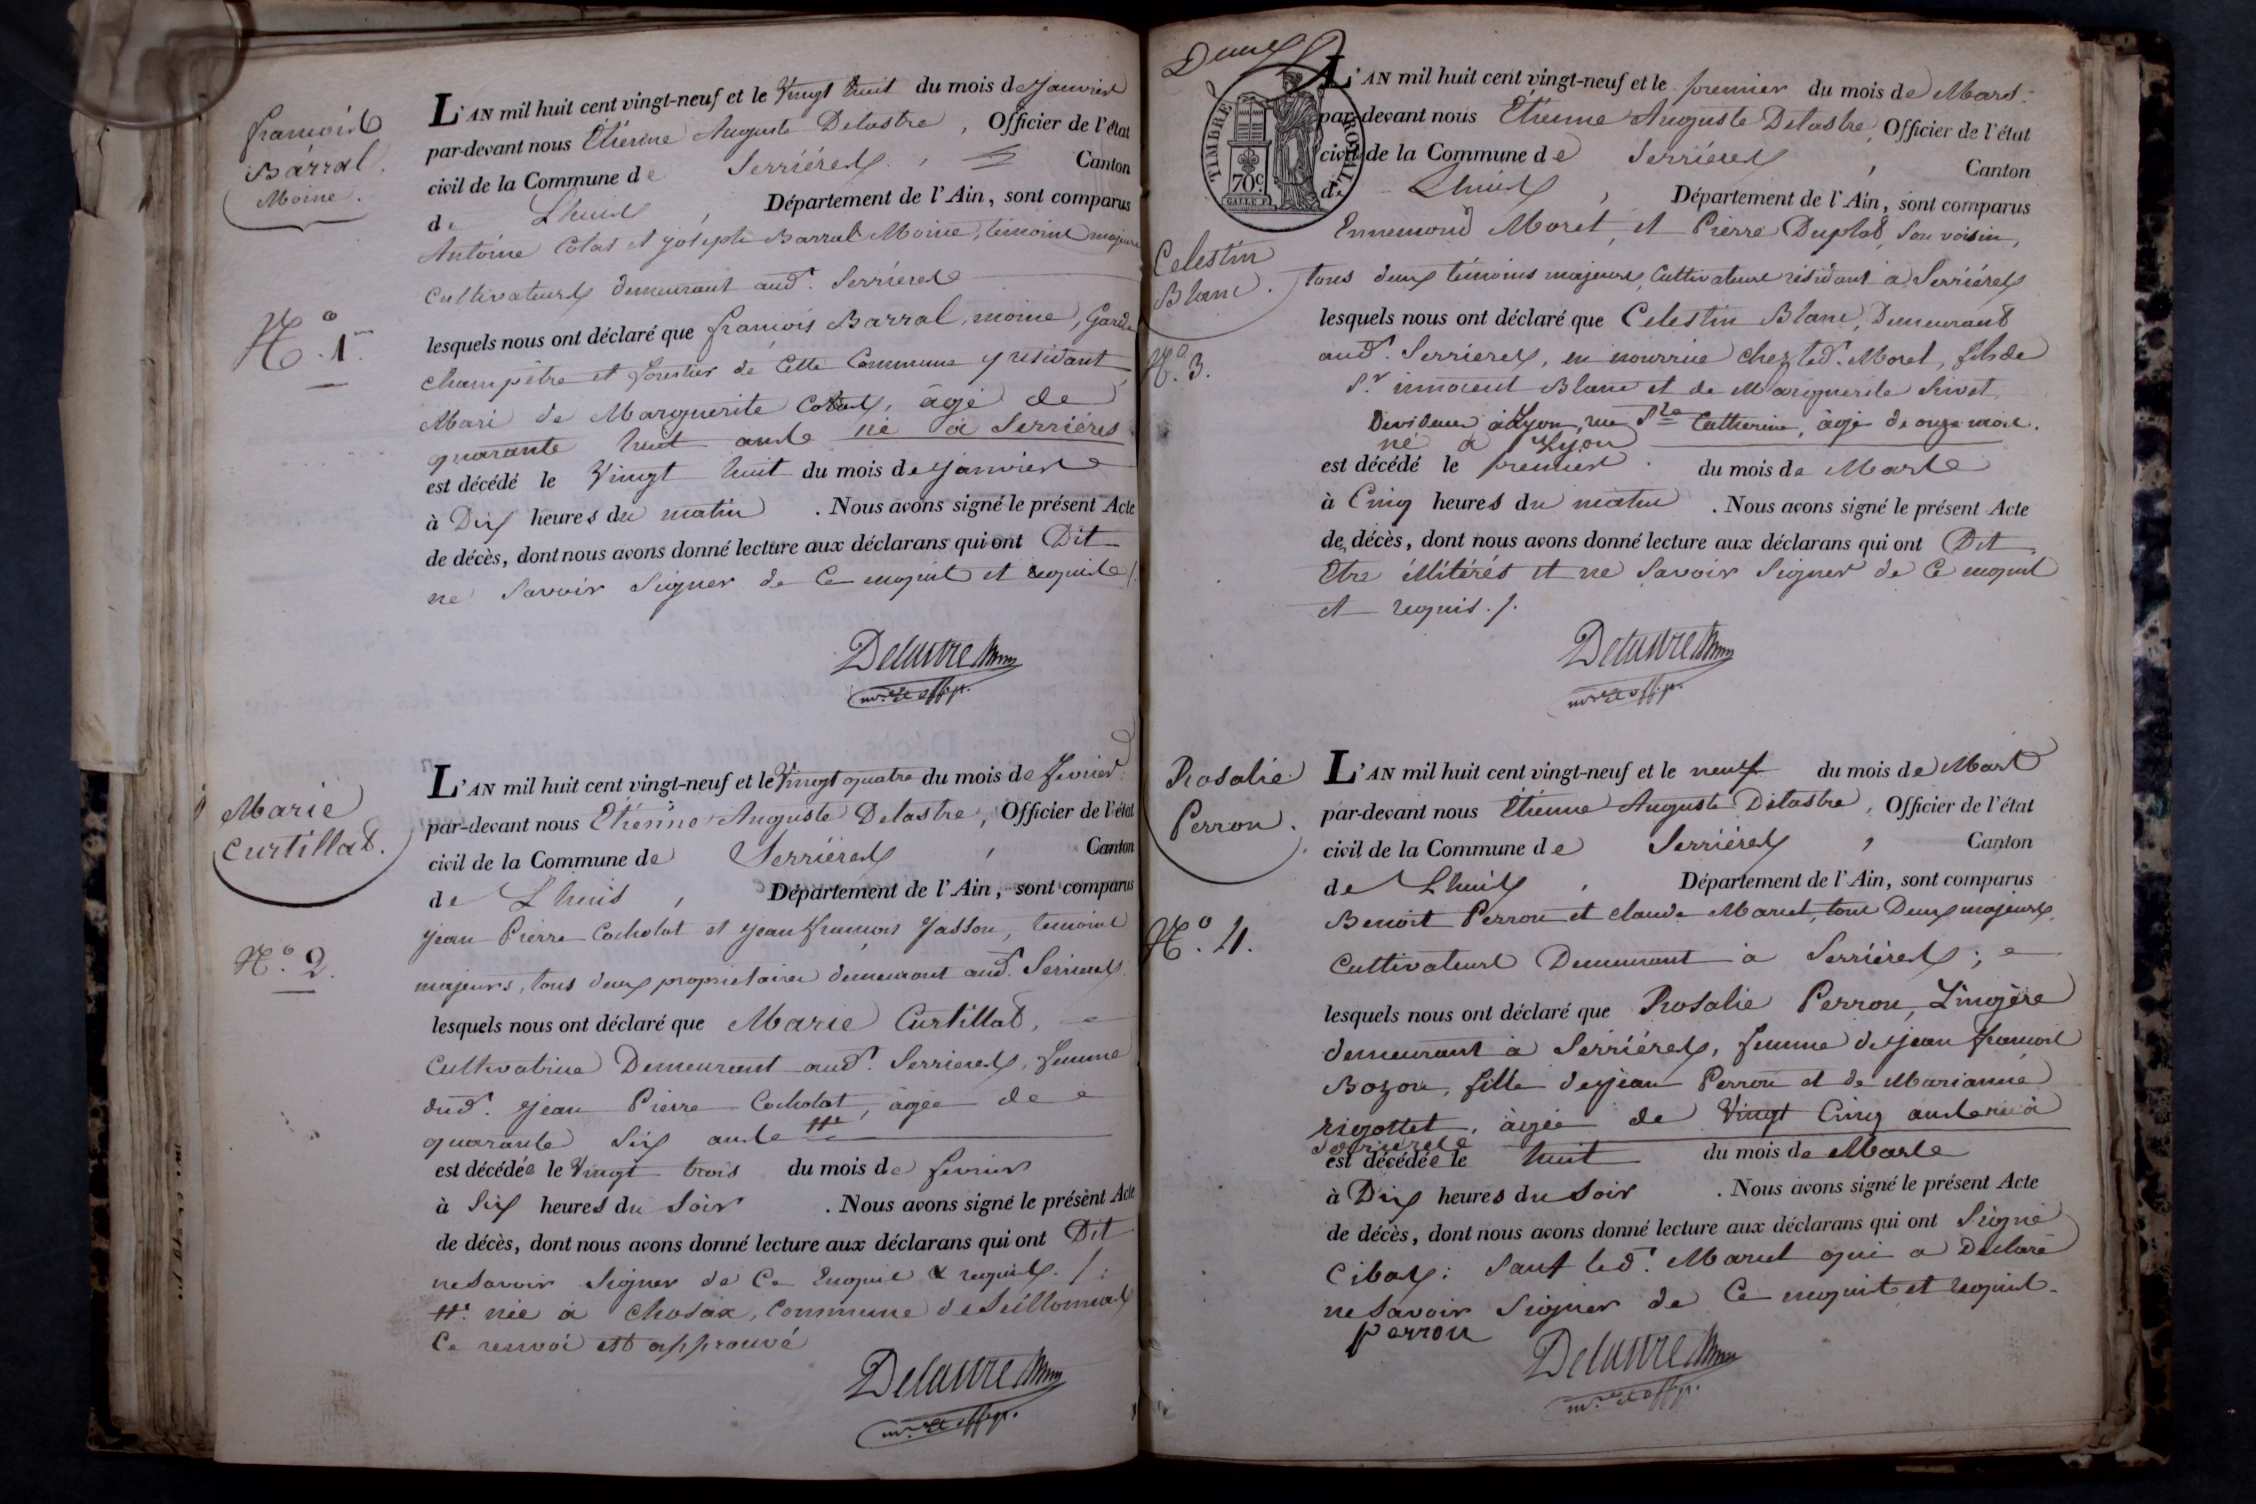 françois
Barral
Moine.
N.º 1.er
L'AN mil huit cent vingt-neuf et le Vingt huit du mois de janvier
par-devant nous Etienne Auguste Delastre, Officier de l'état
civil de la Commune de Serrières, Canton
de Lhuis, Département de l'Ain, sont comparus
Antoine Colas et joseph Barral Moine, témoins majeurs
Cultivateurs demeurant aud. Serrières
lesquels nous ont déclaré que françois Barral, moine, Garde
champêtre et forestier de Cette Commune y résidant
Mari de Marguerite Colas, âgé de
quarante huit ans né à Serrières
est décédé le Vingt huit du mois de janvier
à Dix heures du matin. Nous avons signé le présent Acte
de décès, dont nous avons donné lecture aux déclarans qui ont Dit
ne Savoir Signer de Ce enquis et requis /.
Delastre
Marie
Curtillat.
N.º 2.
L'AN mil huit cent vingt-neuf et le Vingt quatre du mois de fevrier
par-devant nous Etienne Auguste Delastre, Officier de l'état
civil de la Commune de Serrières, Canton
de Lhuis, Département de l'Ain, sont comparus
jean Pierre Cocholat et jean françois jasson, temoins
majeurs, tous deux propriétaires demeurant aud. Serrieres
lesquels nous ont déclaré que Marie Curtillat,
Cultivatrice Demeurant aud. Serrieres, femme
dud. jean Pierre Cocholat, âgée de
quarante Six ans #
est décédée le Vingt trois du mois de fevrier
à Six heures du Soir. Nous avons signé le présent Acte
de décès, dont nous avons donné lecture aux déclarans qui ont Dit
ne Savoir Signer de Ce Enquis & requis. /:
#. née à Chosax, Commune de Seillonnas
Ce renvoi est approuvé
Delastre
Deux
TIMBRE ROYAL
70c
Celestin
Blanc.
N.º 3.
L'AN mil huit cent vingt-neuf et le premier du mois de Mars.
par-devant nous Etienne Auguste Delastre, Officier de l'état
civil de la Commune de Serrières, Canton
de Lhuis, Département de l'Ain, sont comparus
Ennemond Moret, et Pierre Duplat, Son voisin,
tous deux témoins majeurs, Cultivateurs résidant à Serrières
lesquels nous ont déclaré que Celestin Blanc, Demeurant
aud. Serrieres, en nourrice chez led. Moret, fils de
S.r innocent Blanc et de Marguerite Rivet
Devideur à Lyon, rue S.te Catherine, âgé de onze mois.
né à Lyon
est décédé le premier du mois de Mars
à Cinq heures du matin. Nous avons signé le présent Acte
de décès, dont nous avons donné lecture aux déclarans qui ont Dit
Etre illitérés et ne Savoir Signer de Ce enquis
et requis. /.
Delastre
Rosalie
Perron.
N.º 4.
L'AN mil huit cent vingt-neuf et le neuf du mois de Mars
par-devant nous Etienne Auguste Delastre, Officier de l'état
civil de la Commune de Serrières, Canton
de Lhuis, Département de l'Ain, sont comparus
Benoit Perron et claude Marcel, tous Deux majeurs,
Cultivateurs Demeurant à Serrières;
lesquels nous ont déclaré que Rosalie Perron, Lingère
demeurant à Serrières, femme de jean françois
Bozon, fille de jean Perron et de Marianne
rigottet, âgée de Vingt Cinq ans née à
Serrières
est décédée le huit du mois de Mars
à Dix heures du Soir. Nous avons signé le présent Acte
de décès, dont nous avons donné lecture aux déclarans qui ont Signé
Cibas: Sauf led. Marcel qui a Déclaré
ne Savoir Signer de Ce enquis et requis.
perron
Delastre